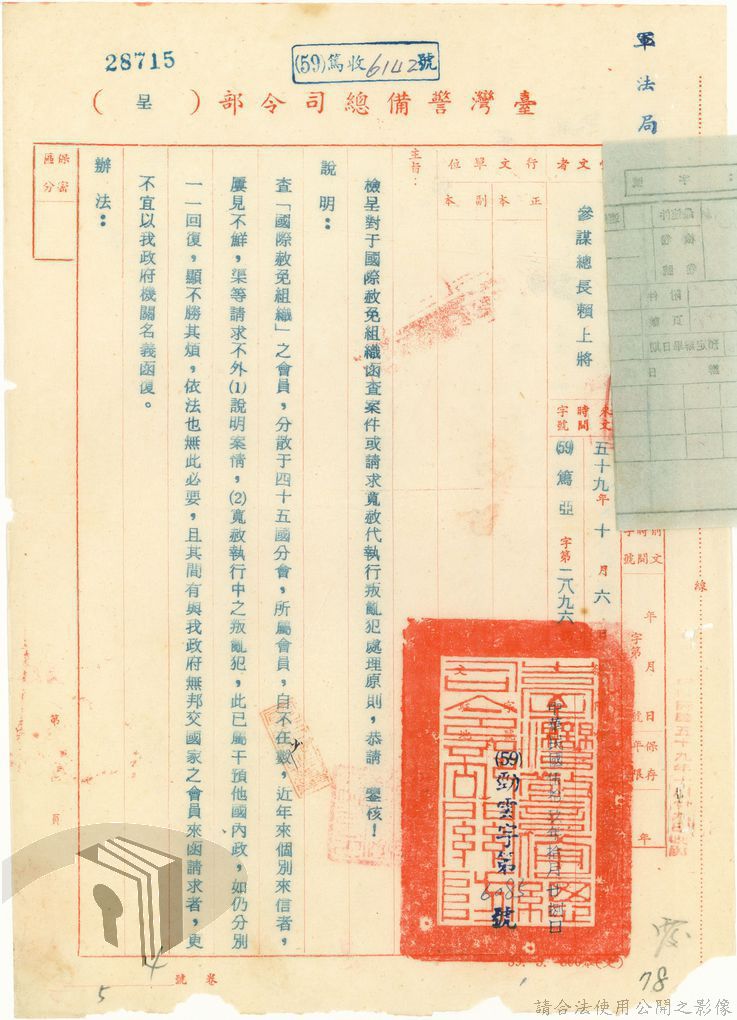 軍法局
28715
(59)篤收6142號
臺灣警備總司令部(呈)
保密
區分
受文者
參謀總長賴上將
行文單位
正本
副本
來文
時間
字號
五十九年十月六日
(59)篤亞字第二八九六
年月日
字第號
保存
年限
年
中華民國
年拾月
日
(59)勁雲字第6085號
主旨：
檢呈對于國際赦免組織函查案件或請求寬赦代執行叛亂犯處理原則，恭請　鑒核！
說明：
查「國際赦免組織」之會員，分散于四十五國分會，所屬會員，自不在少數，近年來個別來信者，
屢見不鮮，渠等請求不外(1)說明案情，(2)寬赦執行中之叛亂犯，此已屬干預他國內政，如仍分別
一一回復，顯不勝其煩，依法也無此必要，且其間有與我政府無邦交國家之會員來函請求者，更
不宜以我政府機關名義函復。
辦法：
線
第
頁
卷號
4
5
78
請合法使用公開之影像